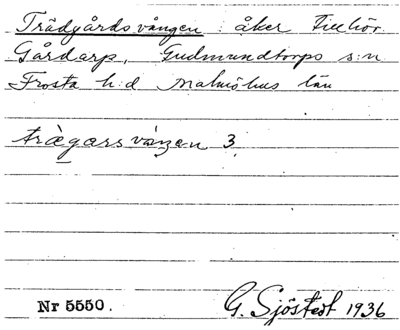 Trädgårdsvången : åker tillhör.
Gårdarp, Gudmundtorps s:n
Frosta h:d Malmöhus län
trægarsvången 3
Nr 5550.
G. Sjöstedt 1936